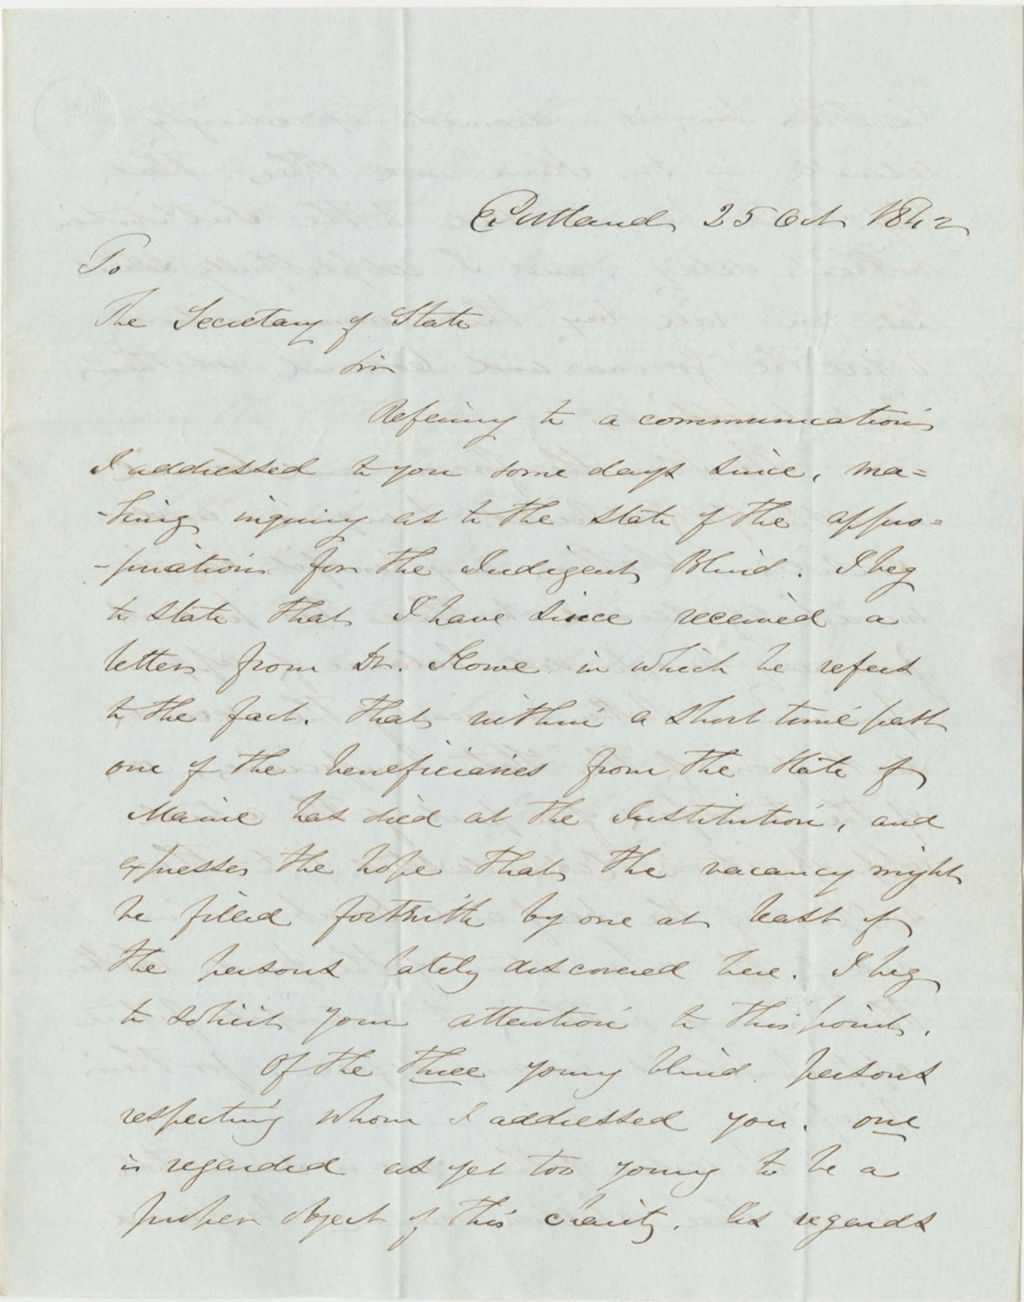 Portland 25 Oct 1842
To
The Secretary of State
Sir
Refering to a communication
I addressed to you some days since, ma=
-king inquiry as to the state of the appro=
-priation for the Indigent Blind. I beg
to state that I have since received a
letter from Dr. Howe in which he refers
to the fact, that within a short time past
one of the beneficiaries from the State of
Maine has died at the Institution, and
expresses the hope that the vacancy might
be filled forthwith by one at least of
the persons lately discovered here. I beg
to solicit your attention to this point.
Of the three young blind persons
respecting whom I addressed you, one
is regarded as yet too young to be a
proper object of this charity. As regards